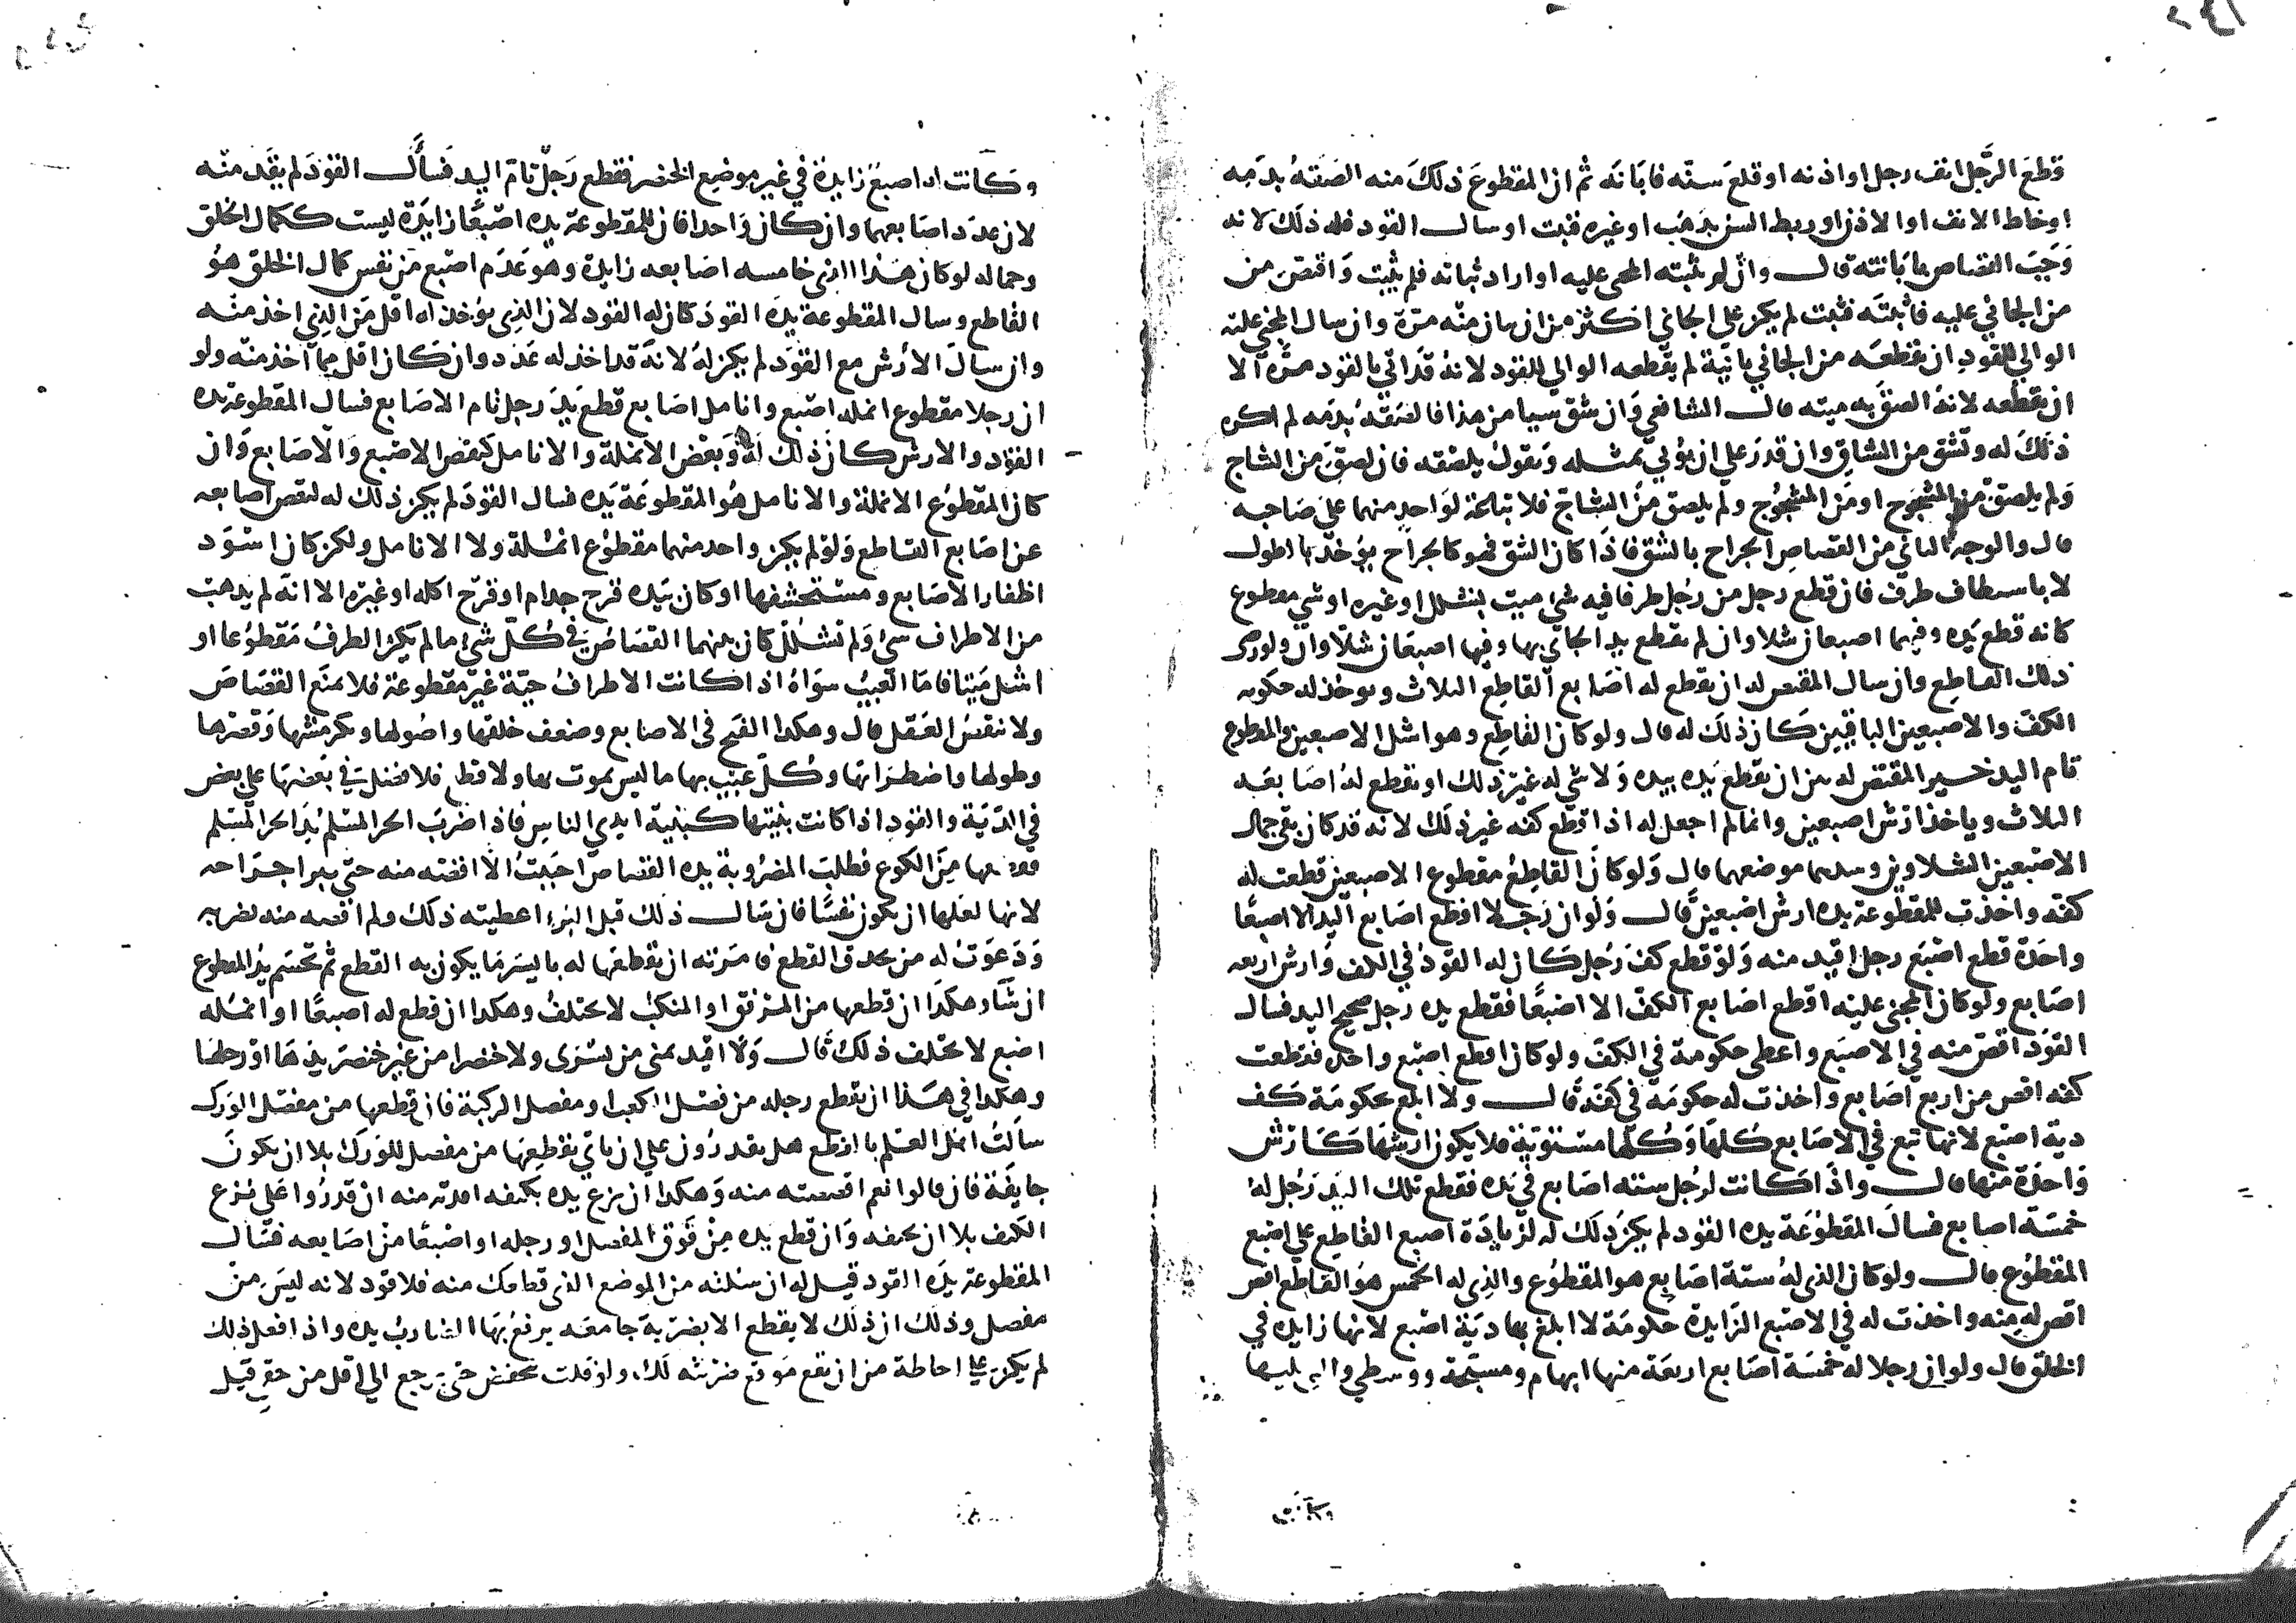 قطع الرجل انف رجل او اذنه او قلع سنه فابانه ثم ان المقطوع ذلك منه الصقه بدمه
او خاط الانف او الاذن او ربط السن بذهب او غيره فثبت او سال القود فله ذلك لانه
وجب القصاص بابانته قال وان لم يثبته المجني عليه او اراد ثباته فلم يثبت واقتص من
من الجاني عليه فاثبته فثبت لم يكن على الجاني اكثر من ان يبان منه مرة وان سال المجني عليه
الوالي القود ان يقطعه من الجاني ثانية لم يقطعه الوالي للقود لانه قد اتي بالقود مرة الا
ان يقطعه لانه الصق به ميته قال الشافعي وان شق شيا من هذا فالصقه بدمه لم اكره
ذلك له وتشق من الشاق وان قدر علي ان يؤتي بمثله ويقول يلصقه فان لصق من الشاج
ولم يلصق من المشجوج او من المشجوج ولم يلصق من الشاج فلا تباعة لواحد منهما على صاحبه
قال والوجه الثاني من القصاص الجراح بالشق فاذا كان الشق فهو كالجراح يؤخذ بالطول
لا باسيطاف طرف فان قطع رجل من رجل طرفا فيه شي ميت بشلل او غيره او شي مقطوع
كانه قطع يده وفيها اصبعان شلاوان لم يقطع يد الجاني بها وفيها اصبعان شلاوان ولو رضي
ذلك القاطع وان سال المقتص له ان يقطع له اصابع القاطع الثلاث ويوخذ له حكومة
الكف والاصبعين الباقيين كان ذلك له قال ولو كان القاطع وهو اشل الاصبعين والمقطوع
تام اليد خير المقتص له بين ان يقطع يده بيده ولا شي له غير ذلك او يقطع له اصابعه
الثلاث وياخذ ارش اصبعين وانما لم اجعل له اذا اقطع كفه غير ذلك لانه قد كان بقي جمال
الاصبعين الشلاوين وسدهما موضعهما قال ولو كان القاطع مقطوع الاصبعين قطعت له
كفه واخذت للمقطوعة يده ارش اصبعين قال ولو ان رجلا اقطع اصابع اليد الا اصبعا
واحدة قطع اصبع رجل اقيد منه ولو قطع كف رجل كان له القود في الكف وارش اربعه
اصابع ولو كان المجني عليه اقطع اصابع الكف الا اصبعا فقطع يده رجل صحيح اليد فسال
القود اقص منه في الاصبع واعطي حكومة في الكف ولو كان اقطع اصبع واحده فقطعت
كفه اقص من اربع اصابع واخذت له حكومه في كفه قال ولا ابلغ بحكومة كف
دية اصبع لانها تبع في الاصابع كلها وكلها مستوية فلا يكون ارشها كارش
واحدة منها قال واذا كانت لرجل سته اصابع في يده فقطع تلك اليد رجل له
خمسة اصابع فسال المقطوعة يده القود لم يكن ذلك له لزيادة اصبع القاطع علي اصبع
المقطوع قال ولو كان الذي له ستة اصابع هو المقطوع والذي له الخمس هو القاطع اقص
اقص له منه واخذت له في الاصبع الزايدة حكومة لا ابلغ بها دية اصبع لانها زايده في
الخلق قال ولو ان رجلا له خمسة اصابع اربعة منها ابهام ومسبحة ووسطي والتي يليها
وكانت
وكانت اصبع زايدة في غير موضع الخنصر فقطع رجل تام اليد فسال القود لم يقد منه
لان عدد اصابعهما وان كان واحدا فان للمقطوعة يده اصبعا زايدة ليست ككمال الخلق
وجماله لو كان هذا الذي خامسه اصابعه زايدة وهو عدم اصبع من نفس كمال الخلق هو
القاطع وسال المقطوعة يده القود كان له القود لان الذي يؤخذ له اقل من الذي اخذ منه
وان سال الارش مع القود لم يكن له لانه قد اخذ له عدد وان كان اقل مما اخذ منه ولو
ان رجلا مقطوع انمله اصبع وانامل اصابع قطع يد رجل تام الاصابع فسال المقطوعة يده
القود والارش كان ذلك له ونقص الانملة والانامل كنقص الاصبع والاصابع وان
كان المقطوع الانملة والانامل هو المقطوعة يده فسال القود لم يكن ذلك له لنقص اصابعه
عن اصابع القاطع ولو لم يكن واحد منهما مقطوع انملة ولا الانامل ولكن كان اسود
اظفار الاصابع ومستحشفها او كان بيده قرح جدام او قرح اكله او غيره الا انه لم يذهب
من الاطراف شي ولم تشلل كان بينهما القصاص في كل شي ما لم يكن الطرف مقطوعا او
اشل ميتا فاما العيب سواه اذا كانت الاطراف حية غير مقطوعة فلا يمنع القصاص
ولا ينقص العقل قال وهكذا القبح في الاصابع وضعف خلقها واصولها وتكرمشها وقصرها
وطولها واضطرابها وكل عيب بها ما ليس بموت بها ولا قطع فلا فضل في بعضها علي بعض
في الدية والقود اذا كانت بنيتها كبنية ايدي الناس فاذا ضرب الحر المسلم يد الحر المسلم
فقطعها من الكوع فطلب المضروبة يده القصاص احببت الا اقصه منه حتي يبرا جراحه
لانها لعلها ان يكون نفسا فان سال ذلك قبل البرء اعطيته ذلك ولم اقصه منه بضربه
ودعوت له من يحذق القطع فامرته ان يقطعها له بايسر ما يكون به القطع ثم تحسم يد المقطوع
ان شا وهكذا ان قطعها من المرفق او المنكب لا يختلف وهكذا ان قطع له اصبعا او انمله
اصبع لا يختلف ذلك قال ولا اقيد يمني من يسرى ولا خنصرا من غير خنصر يدها او رجلها
وهكذا في هذا ان يقطع رجله من مفصل الكعب او مفصل الركبة فان قطعها من مفصل الورك
سالت اهل العلم بالقطع هل يقدرون علي ان ياتي يقطعها من مفصل للورك بلا ان يكون
جايفة فان قالوا نعم اقصصته منه وهكذا ان نزع يده بكتفه اقدته منه ان قدروا على نزع
الكتف بلا ان يجيفه وان قطع يده من فوق المفصل او رجله او اصبعا من اصابعه فسال
المقطوعة يده القود قيل له ان سالته من الموضع الذي قطعك منه فلا قود لانه ليس من
مفصل وذلك ان ذلك لا يقطع الا بضربة جامعه يرفع بها الضارب يده واذا فعل ذلك
لم يكن علي احاطة من ان تقع موقع ضربته لك، واذ قلت تخفض حتى يرجع الي اقل من حقي قيل